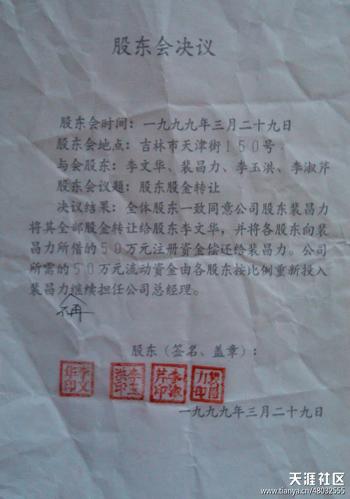 股东会决议
股东会时间：一九九九年三月二十九日
股东会地点：吉林市天津街150号
与会股东：李文华、裴昌力、李玉洪、李淑芹
股东会议题：股东股金转让
决议结果：全体股东一致同意公司股东裴昌力
将其全部股金转让给股东李文华，并将各股东向裴
昌力所借的50万元注册资金偿还给裴昌力。公司
所需的50万元流动资金由各股东按比例重新投入
裴昌力继续担任公司总经理。
不再
股东（签名、盖章）：
李文华印
李玉洪印
李淑芹印
裴昌力印
一九九九年三月二十九日
天涯社区
www.tianya.cn/48032555